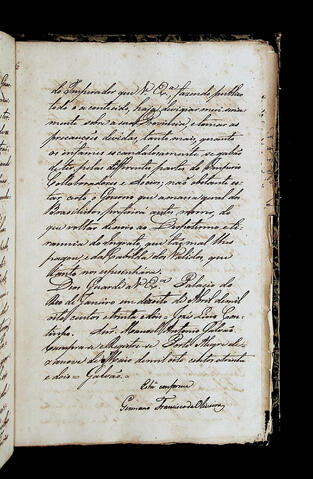 do Imperador que V. Ex.ª fazendo publicar
todo o acontecido, haja de vigiar mui seria
mente sobre a sua Provincia e tomar as
precauções devidas, tanto mais, quanto
os infames escandalosamente se gabão
de ter pelas differentes partes do Imperio
Collaboradores e Socios; não obstante es
tar certo o Governo que a maioria geral dos
Brasileiros prefirirá antes morrer, do
que voltar de novo ao Despotismo e ty
rannia do Ingrato, que tão mal lhes
pagou, e da quadrilha dos Validos, que
tanto nos espesinhára.
Deos Guarde a V. Ex.ª Palacio do
Rio de Janeiro em de Abril de mil
oito centos e trinta e dois = José Lino Cou
tinho. = Snr. Manoel Antonio Galvão.
Cumpra-se e Registe-se Porto Alegre de
zanove de Maio de mil oito centos e trinta
e dois = Galvão.
Está conforme
Germano Francisco de Oliveira